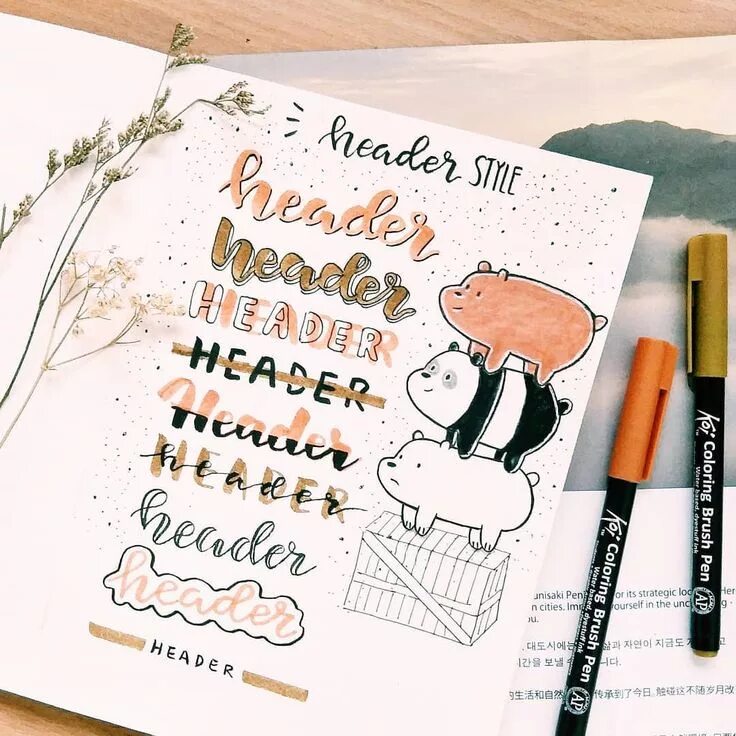 header STYLE
header
header
HEADER
HEADER
Header
header
HEADER
header
header
HEADER
Koi Coloring Brush Pen
Water based, dyestuff ink
AP
Koi Coloring Brush Pen
Water based, dyestuff ink
AP
for its strategic
cities. yourself in the
대도시에는 삶과 자연이 지금도
시간을 보낼 수
的生活和自然 传承到了今日, 触碰这不随岁月改